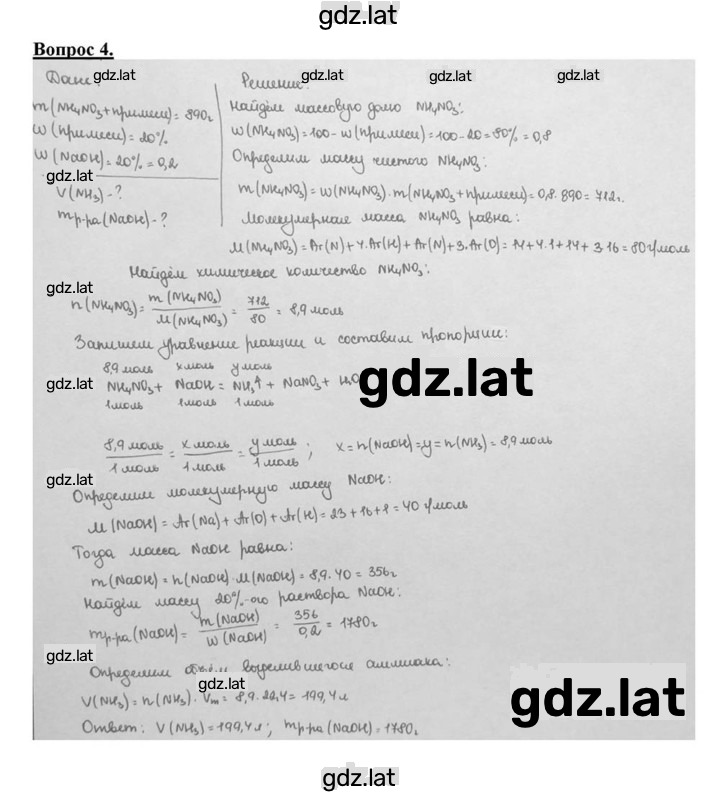 gdz.lat
Вопрос 4.
Дано: gdz.lat
Решение: gdz.lat gdz.lat gdz.lat
m(NH₄NO₃+примеси)=890г
w(примеси)=20%
w(NaOH)=20%=0,2
gdz.lat
V(NH₃)-?
mр-ра(NaOH)-?
Найдём массовую долю NH₄NO₃:
w(NH₄NO₃)=100-w(примеси)=100-20=80%=0,8
Определим массу чистого NH₄NO₃:
m(NH₄NO₃)=w(NH₄NO₃)·m(NH₄NO₃+примеси)=0,8·890=712г.
Молекулярная масса NH₄NO₃ равна:
M(NH₄NO₃)=Ar(N)+4·Ar(H)+Ar(N)+3·Ar(O)=14+4·1+14+3·16=80г/моль
Найдём химическое количество NH₄NO₃:
gdz.lat
n(NH₄NO₃)=m(NH₄NO₃)/M(NH₄NO₃)=712/80=8,9моль
Запишем уравнение реакции и составим пропорции:
8,9моль xмоль yмоль
gdz.lat NH₄NO₃+ NaOH = NH₃↑ + NaNO₃+ H₂O gdz.lat
1моль 1моль 1моль
8,9моль/1моль=xмоль/1моль=yмоль/1моль; x=n(NaOH)=y=n(NH₃)=8,9моль
gdz.lat
Определим молекулярную массу NaOH:
M(NaOH)=Ar(Na)+Ar(O)+Ar(H)=23+16+1=40г/моль
Тогда масса NaOH равна:
gdz.lat
m(NaOH)=n(NaOH)·M(NaOH)=8,9·40=356г
Найдём массу 20%-ого раствора NaOH:
mр-ра(NaOH)=m(NaOH)/w(NaOH)=356/0,2=1780г
gdz.lat
Определим выделившегося аммиака:
gdz.lat gdz.lat
V(NH₃)=n(NH₃)·Vm=8,9·22,4=199,4л
Ответ: V(NH₃)=199,4л; mр-ра(NaOH)=1780г
gdz.lat